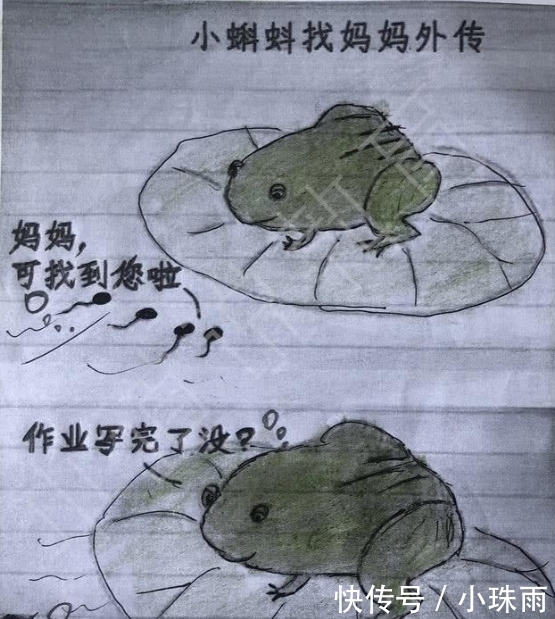 小蝌蚪找妈妈外传
妈妈,
可找到您啦
作业写完了没?
快传号 / 小珠雨